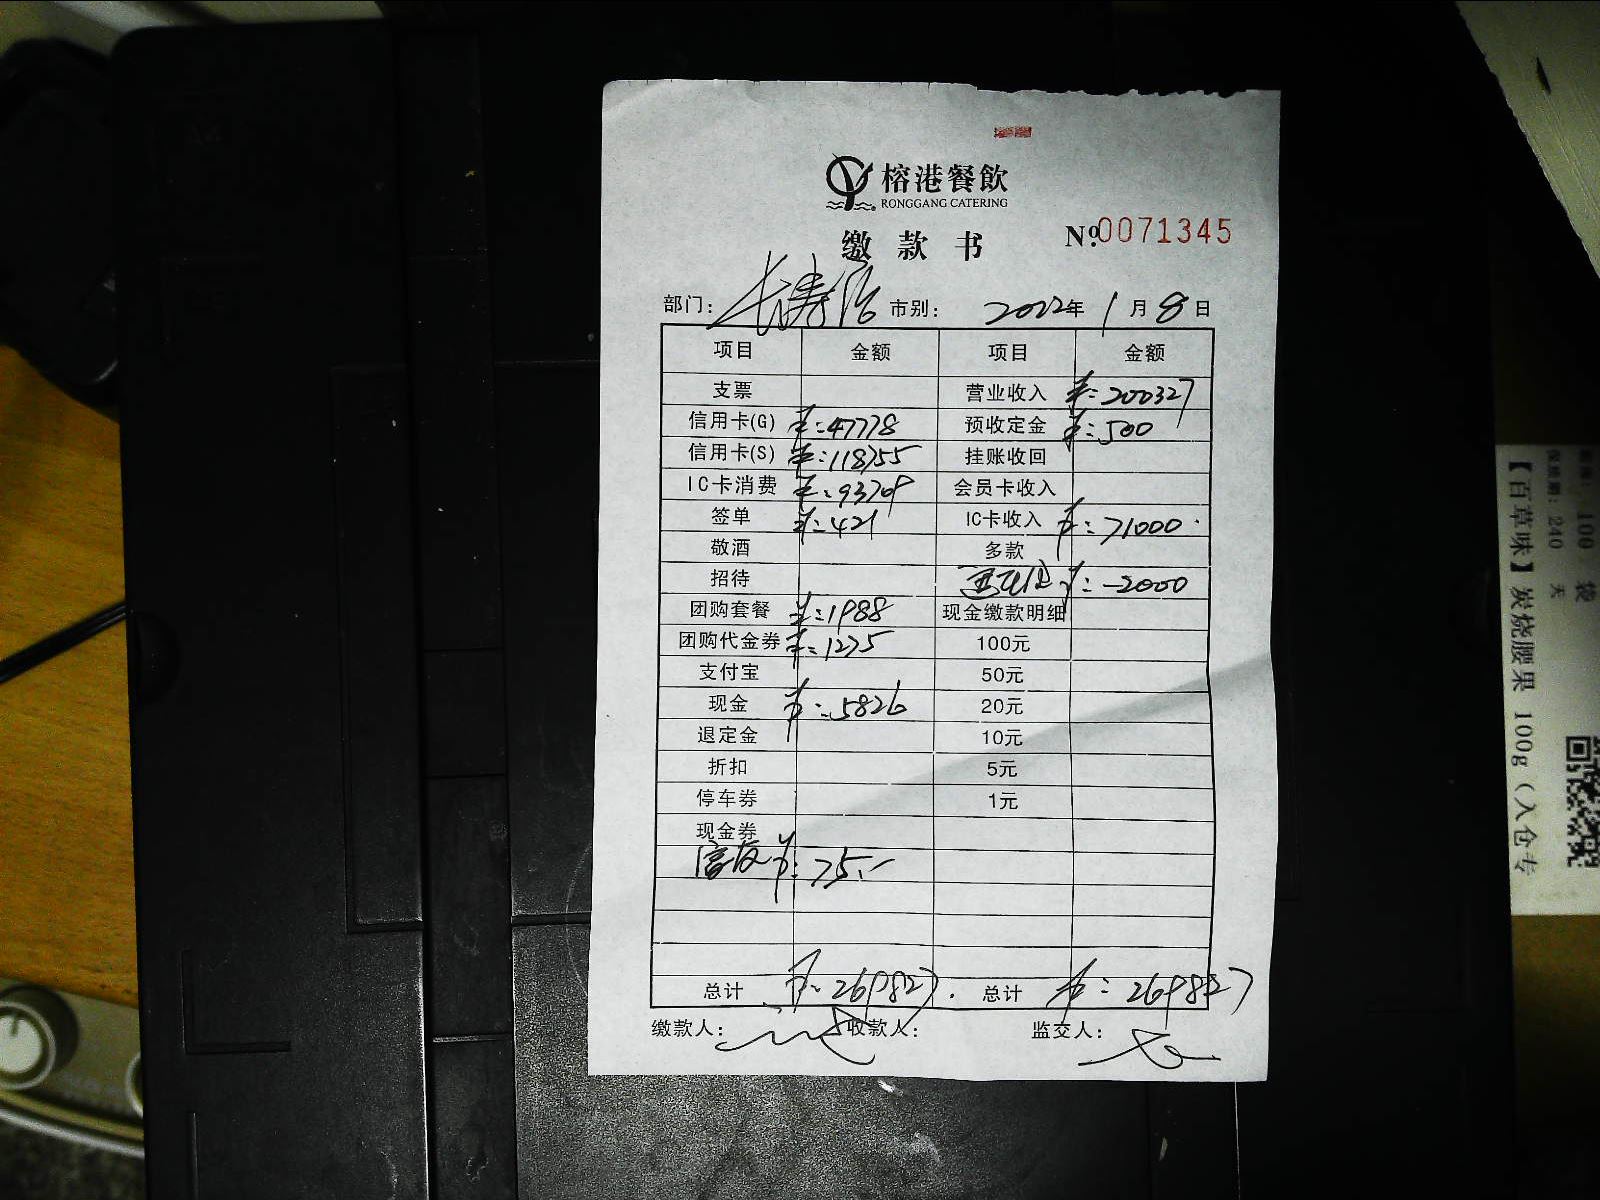 榕港餐飲
RONGGANG CATERING
缴款书
№0071345
部门: 长寿路 市别: 2022年 1月 8日
项目 金额 项目 金额
支票 营业收入 ¥:200327
信用卡(G) ¥:47778 预收定金 ¥:500
信用卡(S) ¥:118755 挂账收回
IC卡消费 ¥:93709 会员卡收入
签单 ¥:421 IC卡收入 ¥:71000
敬酒 多款
招待 ¥:-2000
团购套餐 ¥:1988 现金缴款明细
团购代金券 ¥:1275 100元
支付宝 50元
现金 ¥:5826 20元
退定金 10元
折扣 5元
停车券 1元
现金券
富友 ¥:75.-
总计 ¥:269827. 总计 ¥:269827
缴款人: 收款人: 监交人:
100 袋
保质期: 240 天
【百草味】炭烧腰果 100g（入仓专